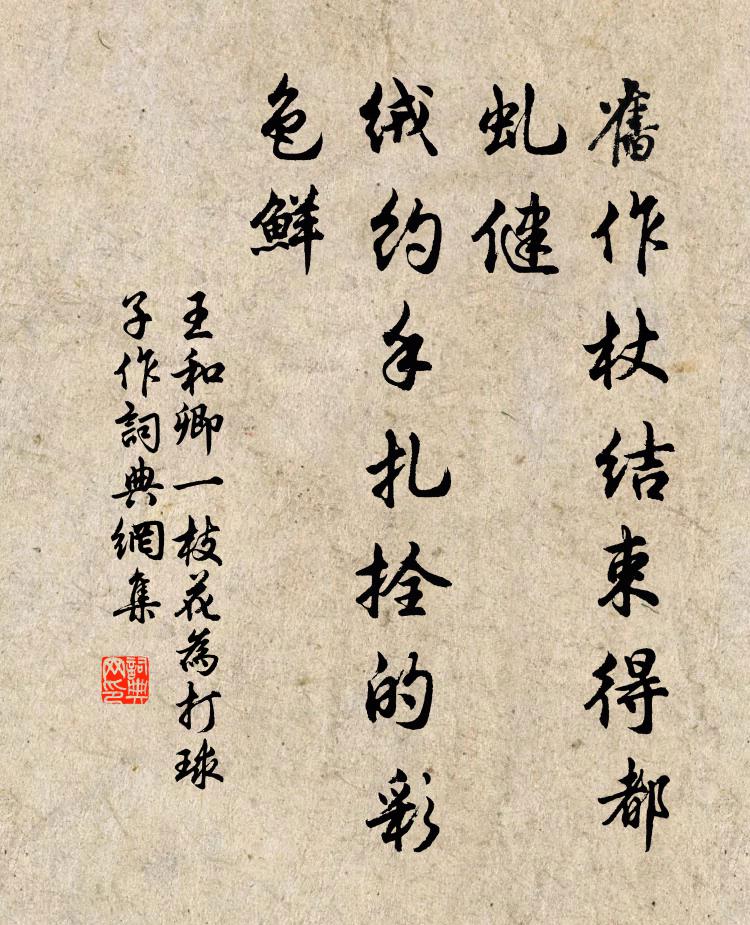 舊作杖結束得都
虬健
絨約手扎拴的彩
色鮮
王和卿一枝花為打球
子作詞典網集
詞典
网印